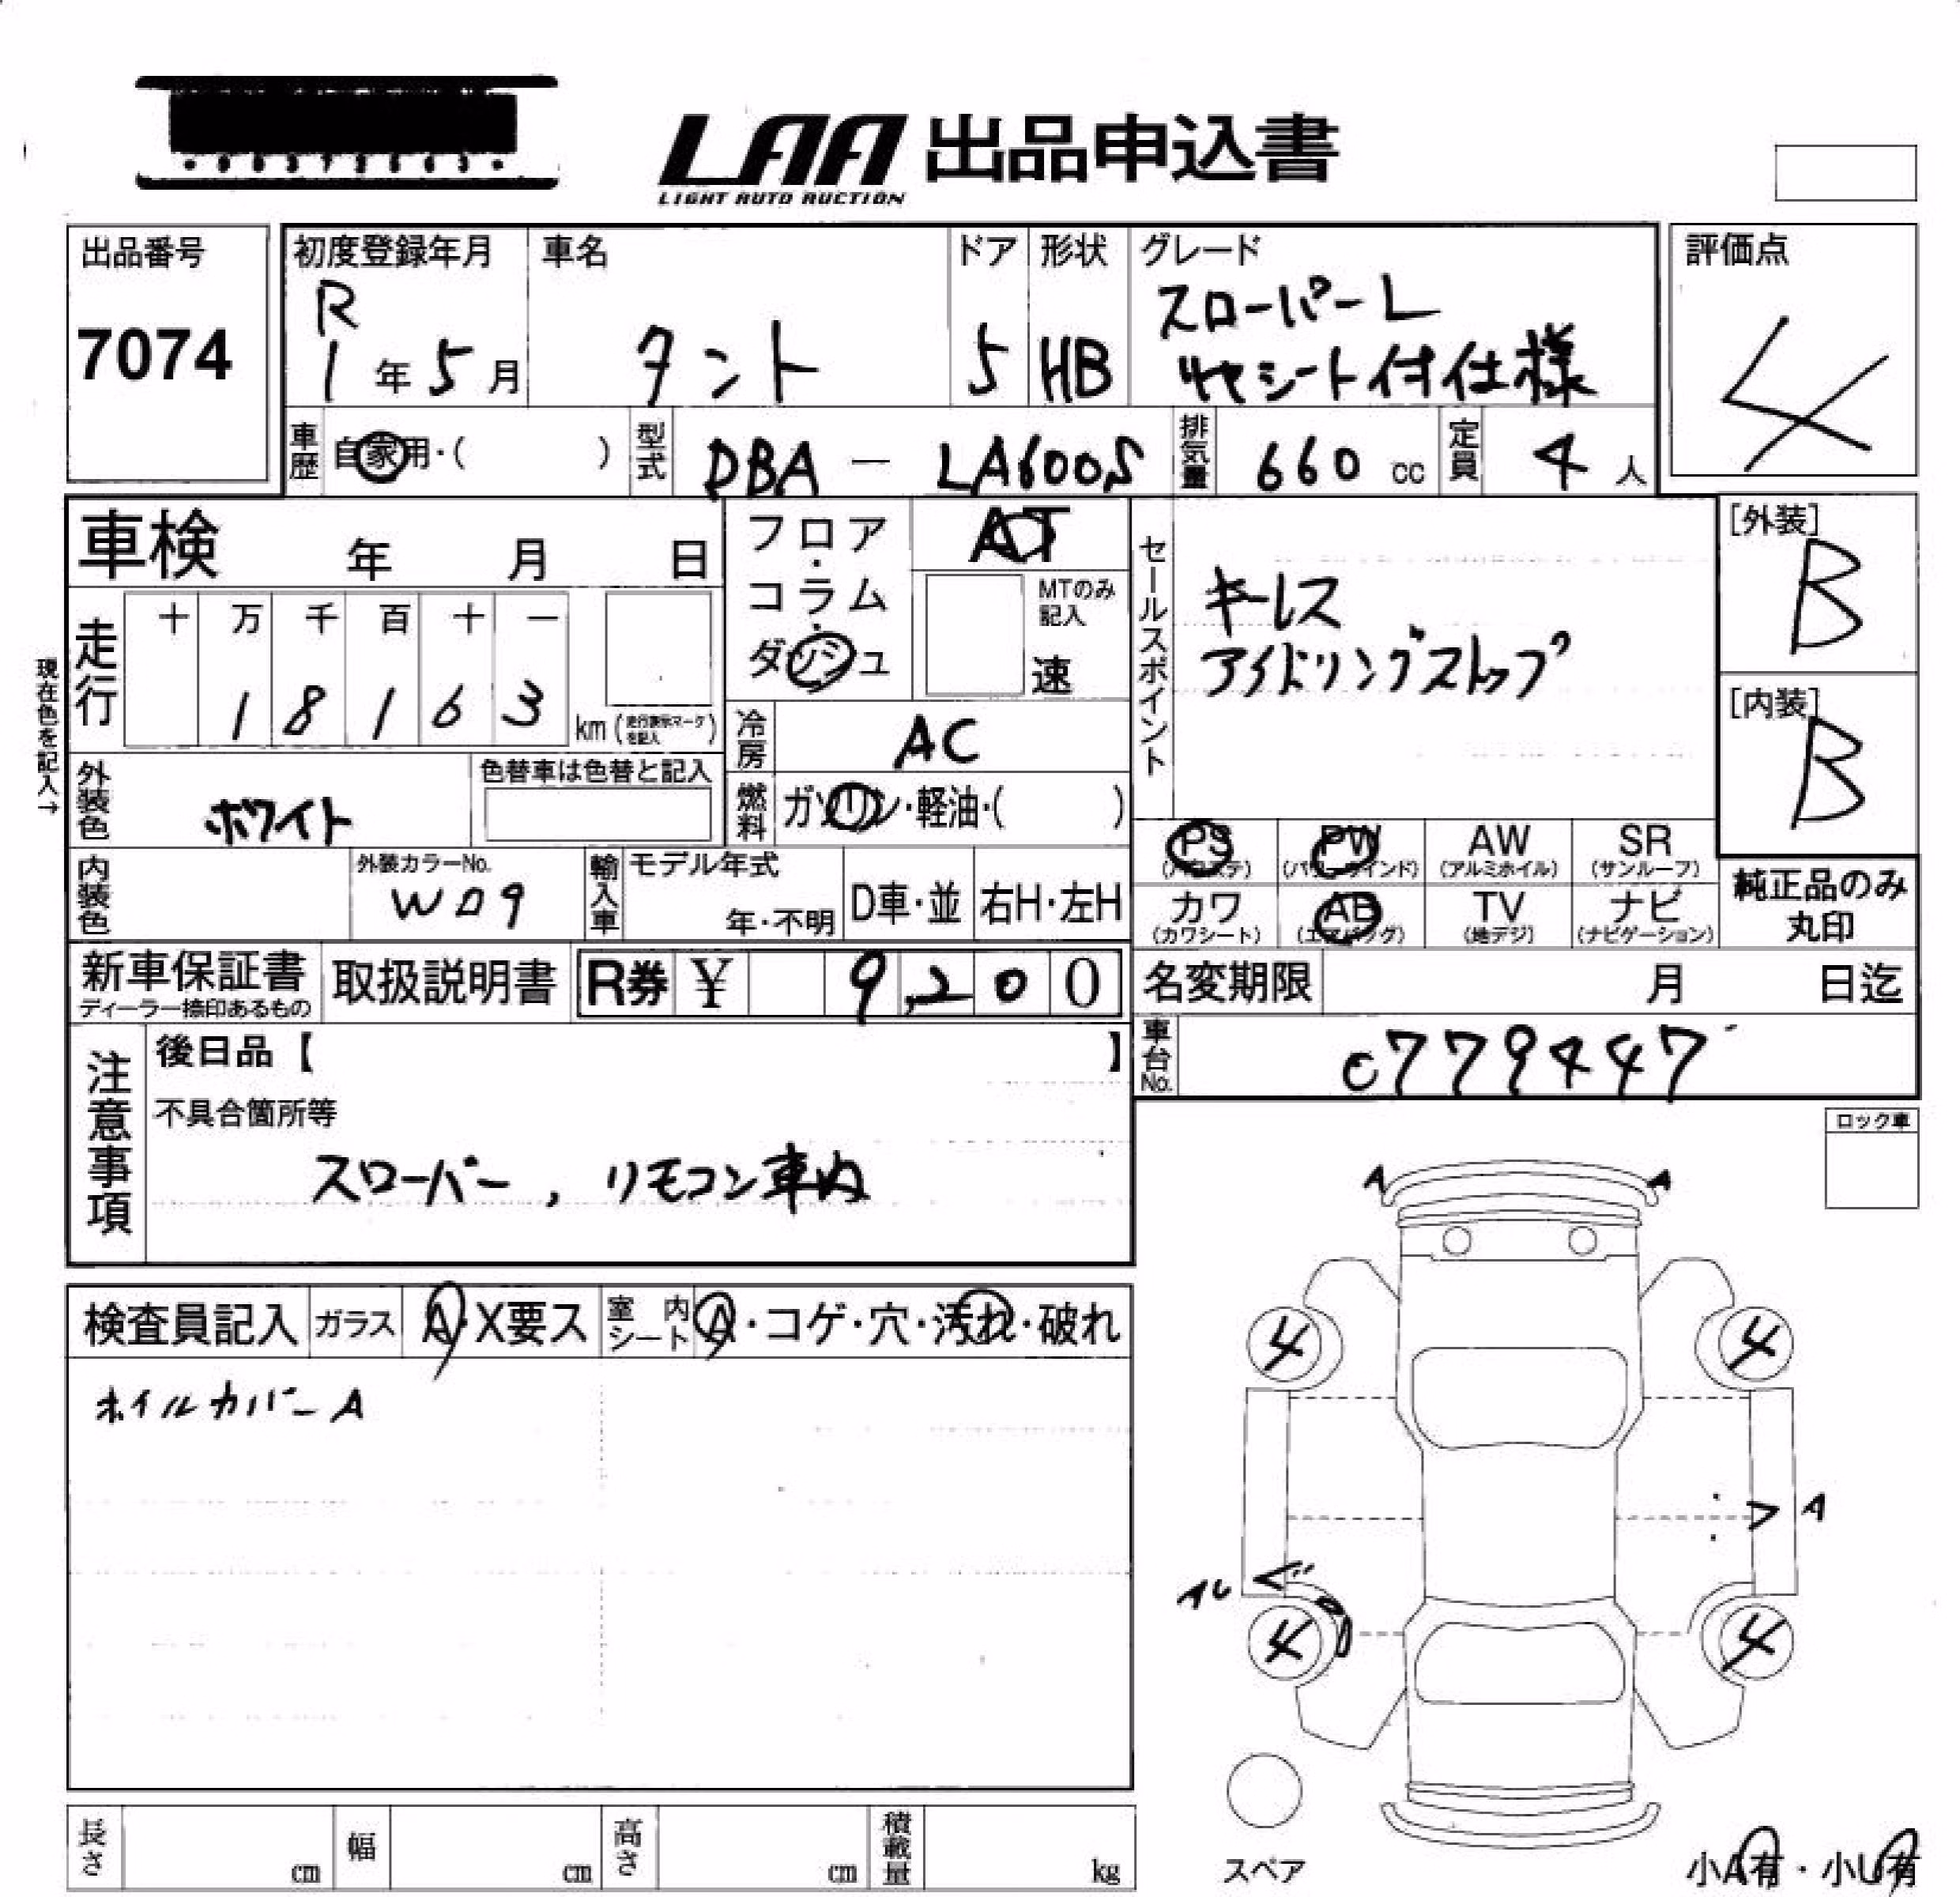 LAA 出品申込書
LIGHT AUTO AUCTION
出品番号
7074
初度登録年月
R
1年5月
車名
タント
ドア
5
形状
HB
グレード
スローパーL
リヤシート付仕様
評価点
4
車歴
自家用・( )
型式
DBA - LA600S
排気量
660 cc
定員
4 人
車検 年 月 日
フロア・コラム・ダッシュ
AT
MTのみ記入
速
セールスポイント
キーレス
アイドリングストップ
[外装]
B
[内装]
B
現在色を記入→
走行
十 万 千 百 十 一
1 8 1 6 3
km (走行表示マークを記入)
冷房
AC
外装色
ホワイト
色替車は色替と記入
燃料
ガソリン・軽油・( )
PS
PW
(パワーウインド)
AW
(アルミホイル)
SR
(サンルーフ)
内装色
外装カラーNo.
W09
輸入車
モデル年式
年・不明
D車・並
右H・左H
カワ
(カワシート)
AB
(エアバッグ)
TV
(地デジ)
ナビ
(ナビゲーション)
純正品のみ
丸印
新車保証書
ディーラー捺印あるもの
取扱説明書
R券 ¥ 9,200
名変期限 月 日迄
車台No.
0779447
注意事項
後日品【 】
不具合箇所等
スローパー, リモコン車内
ロック車
検査員記入
ガラス
A・X要ス
室内シート
A・コゲ・穴・汚れ・破れ
ホイルカバーA
A A
4 4
A
4 4
スペア
長さ cm
幅 cm
高さ cm
積載量 kg
小A有・小U有